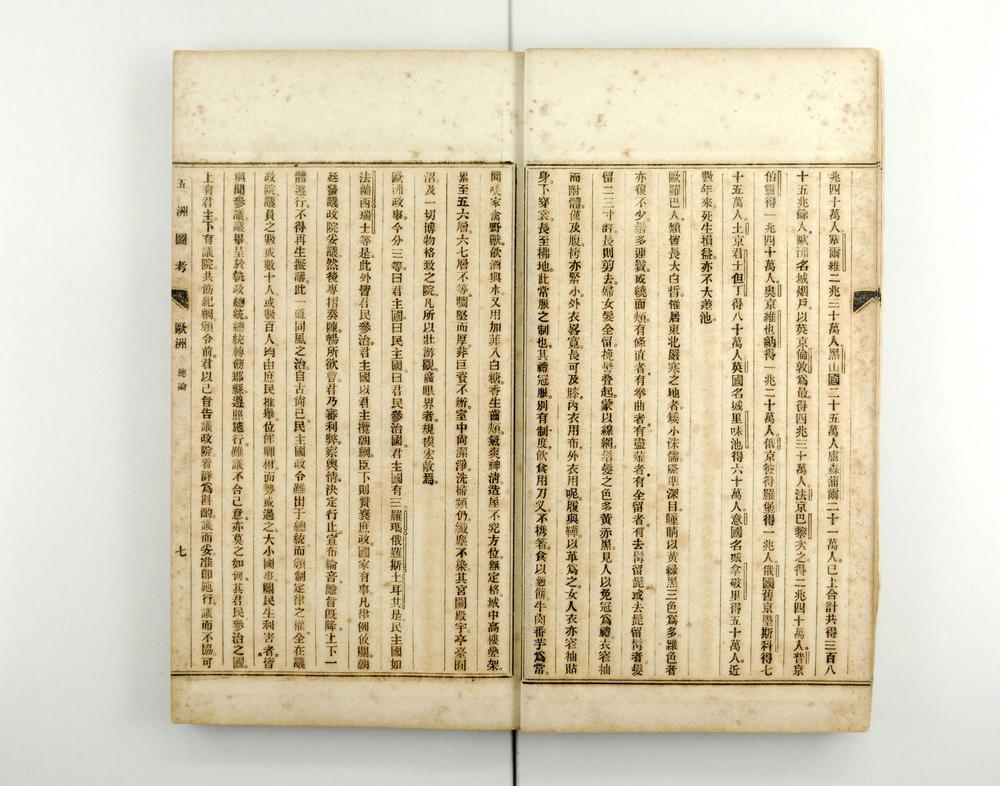 兆四十萬人塞爾維二兆三十萬人黑山國二十五萬人盧森蒲爾二十一萬人已上合計共得三百八
十五兆餘人歐洲名城烟戶以英京倫敦爲最得四兆三十萬人法京巴黎次之得二兆四十萬人普京
伯靈得一兆四十萬人奧京維也納得一兆二十萬人俄京彼得羅堡得一兆人俄國舊京墨斯科得七
十五萬人土京君士但丁得八十萬人英國名城里味池得六十萬人意國名城拿破里得五十萬人近
數年來死生損益亦不大差池
歐羅巴人類皆長大白晳惟居東北嚴寒之地者矮小侏儒隆準深目瞳睛以黃綠黑三色爲多雜色者
亦復不少髯多連鬢或繞面頰有條直者有拳曲者有盡薙者有全留者有去髯留髭或去髭留髯者髮
留二三寸許長則剪去婦女髮全留挽髻疊起蒙以線網髮之色多黃赤黑見人以免冠爲禮衣窄袖
而附體僅及腹袴亦緊小外衣畧寬長可及膝內衣用布外衣用呢履與韡以革爲之女人衣亦窄袖貼
身下穿裳長至拂地此常服之制也其禮冠服別有制度飲食用刀叉不携箸食以麫餅牛肉番芋爲常
間噉家禽野獸飲酒與水又用加菲入白糖香生齒頰氣爽神清造屋不究方位無定格城中高樓疊架
累至五六層六七層不等牆堅而厚非巨賚不辦室中尙潔淨洗掃頻仍纖塵不染其宮闕殿宇亭臺園
沼及一切博物格致之院凡所以壯游觀廣眼界者規模宏敞焉
歐洲政事今分三等曰君主國曰民主國曰君民參治國君主國有三羅瑪俄羅斯土耳其是民主國如
法蘭西瑞士等是此外皆君民參治君主國以君主攬朝綱臣下則贊襄庶政國家有事凡律例攸關朝
廷發議政院妥議然後專摺奏陳暢所欲言君乃審利弊察輿情決定行止宣布綸音綸音旣降上下一
體遵行不得再生擬議此一道同風之治自古尙已民主國政令雖出于總統而頒制定律之權全在議
政院議員之數或數十人或數百人均由庶民推舉位侔卿相而勢或過之大小國事關民生利害者皆
與聞參議議畢呈於執政總統總統轉飭郡縣遵照施行雖議不合己意亦莫之如何其君民參治之國
上有君主下有議院共飭紀綱頒令前君以己旨告議政院着詳爲斟酌議而妥准卽施行議而不協可
五洲圖考
歐洲 總論
七